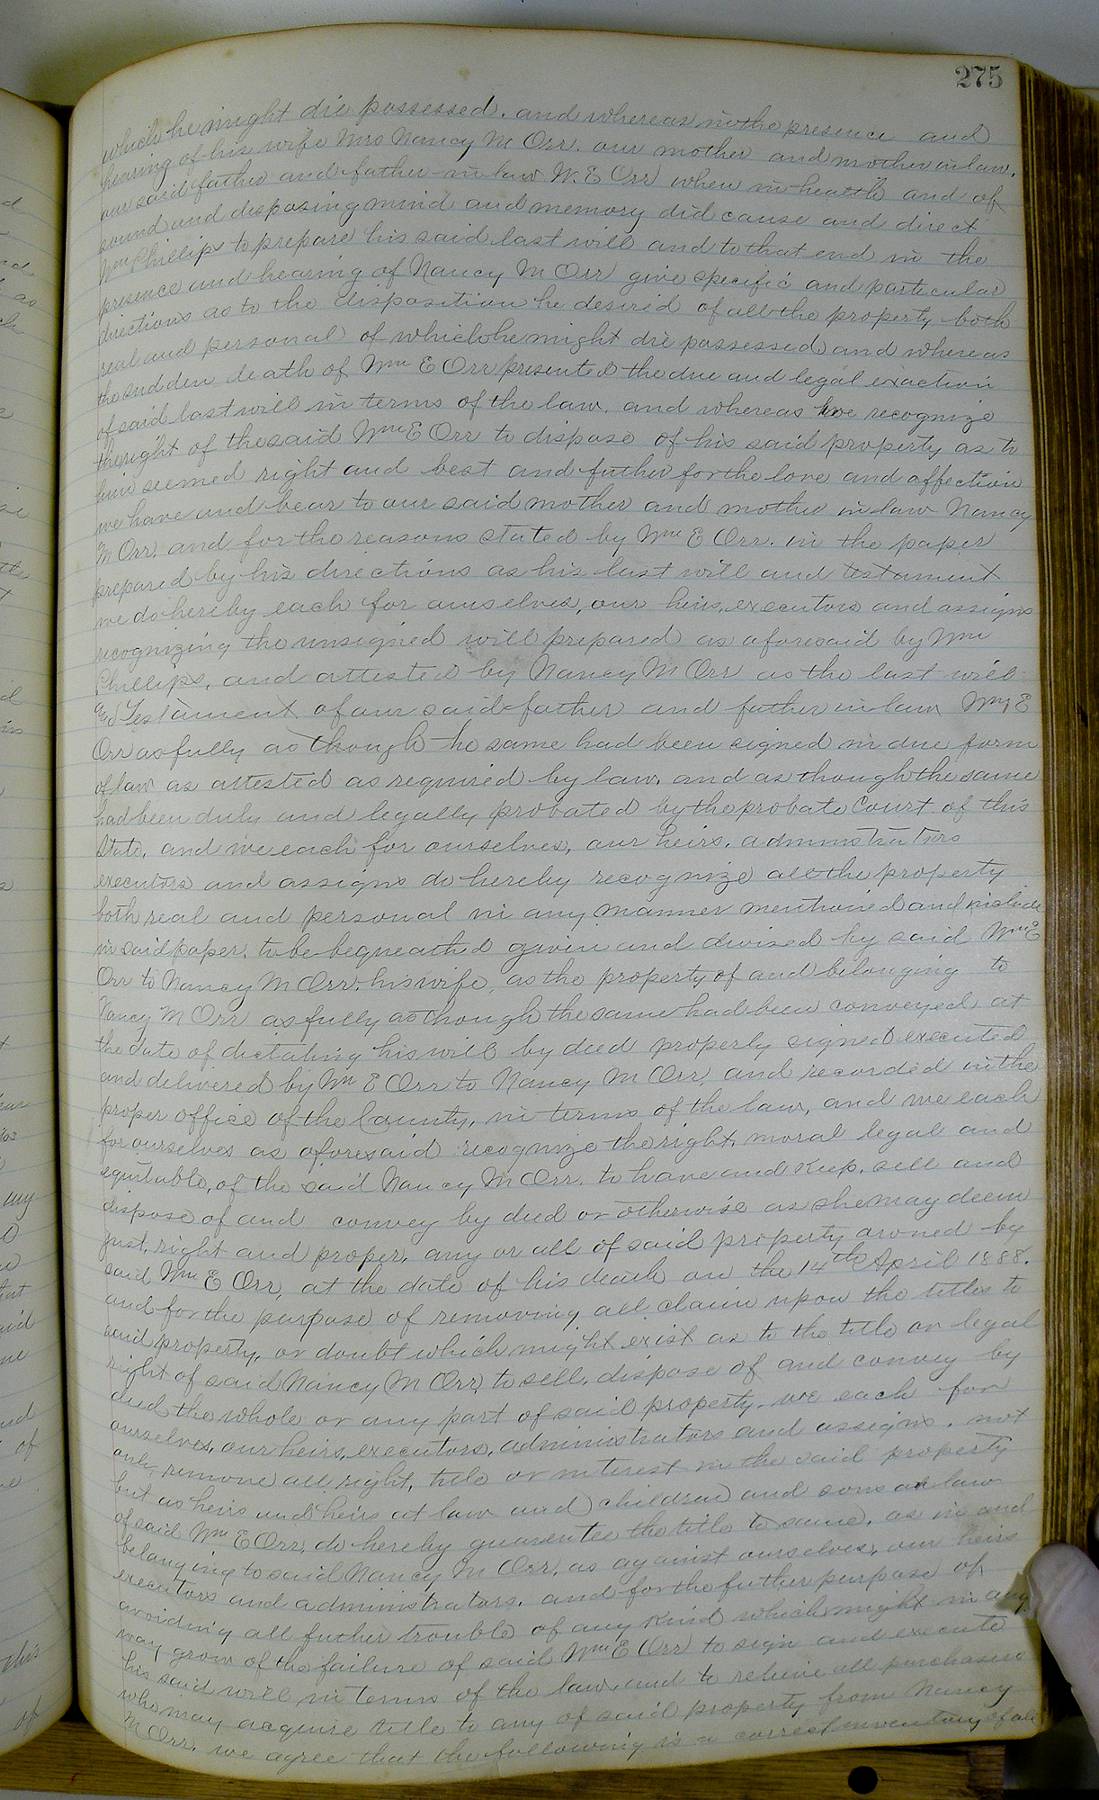 275
which he might die possessed. and whereas in the presence and
hearing of his wife Mrs Nancy M Orr. our mother and mother in law.
our said father and father-in law W. E Orr when in health and of
sound and disposing mind and memory did cause and direct
Wm Phillips to prepare his said last will and to that end in the
presence and hearing of Nancy M Orr give specific and particular
directions as to the disposition he desired of all the property both
real and personal of which he might die possessed and whereas
the sudden death of Wm E Orr presented the due and legal exaction
of said last will in terms of the law. and whereas we recognize
the right of the said Wm E Orr to dispose of his said property as to
him seemed right and best and futher for the love and affection
we have and bear to our said mother and mother in law Nancy
M Orr. and for the reasons stated by Wm E Orr. in the paper
prepared by his directions as his last will and testament
we do hereby each for ourselves, our heirs, executors and assigns
recognizing the unsigned will prepared as aforesaid by Wm
Phillips, and attested by Nancy M Orr as the last will
and Testament of our said father and father in law Wm E
Orr as fully as though the same had been signed in due form
of law as attested as required by law. and as though the same
had been duly and legally probated by the probate Court of this
State. and we each for ourselves, our heirs. administrators
executors and assigns do hereby recognize all the property
both real and personal in any manner mentioned and
in said paper. to be bequeathed given and devised by said Wm E
Orr to Nancy M Orr. his wife, as the property of and belonging to
Nancy M Orr as fully as though the same had been conveyed at
the date of dictating his will by deed properly signed executed
and delivered by Wm E Orr to Nancy M Orr. and recorded in the
proper office of the County, in terms of the law, and we each
for ourselves as aforesaid recognize the right, moral legal and
equitable, of the said Nancy M Orr. to have and keep. sell and
dispose of and convey by deed or otherwise as she may deem
just, right and proper, any or all of said property owned by
said Wm E Orr, at the date of his death on the 14th April 1888.
and for the purpose of removing all claim upon the titles to
said property, or doubt which might exist as to the title or legal
right of said Nancy M Orr, to sell. dispose of and convey by
deed the whole or any part of said property. we each for
ourselves, our heirs, executors, administrators and assigns. not
only remove all right, title or interest in the said property
but as heirs and heirs at law and children and sons at law
of said Wm E Orr, do hereby guarantee the title to same, as in and
belonging to said Nancy M Orr. as against ourselves, our heirs
executors and administrators. and for the futher purpose of
avoiding all futher trouble of any kind which might in any
way grow of the failure of said Wm E Orr to sign and execute
his said will in terms of the law and to relieve all purchasers
who may acquire title to any of said property from Nancy
M Orr. we agree that the following is a correct inventory of all